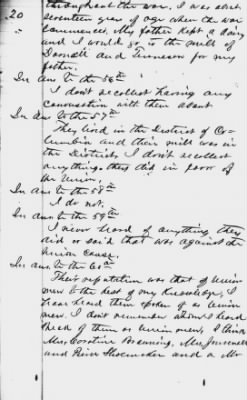 throughout the war. I was about
20
seventeen years of age when the war
commenced. My father kept a dairy
and I would go to the mill of
Darnell and for my
father.
In ans to the 56th
I don't recollect having any
conversation with them about
In Ans to the 57th
They lived in the District of Co-
lumbia and their mill was in
the District. I don't recollect
anything they did in favor of
the Union.
In ans to the 58th
I do not.
In ans. to the 59th
I never heard of anything they
did or said that was against the
Union cause.
In ans. to the 60th
Their reputation was that of Union
men to the best of my knowledge, I
have heard them spoken of as Union
men. I don't remember whom I heard
speak of them as Union men, I think
Mrs. Caroline
and Shoemaker and a Mr